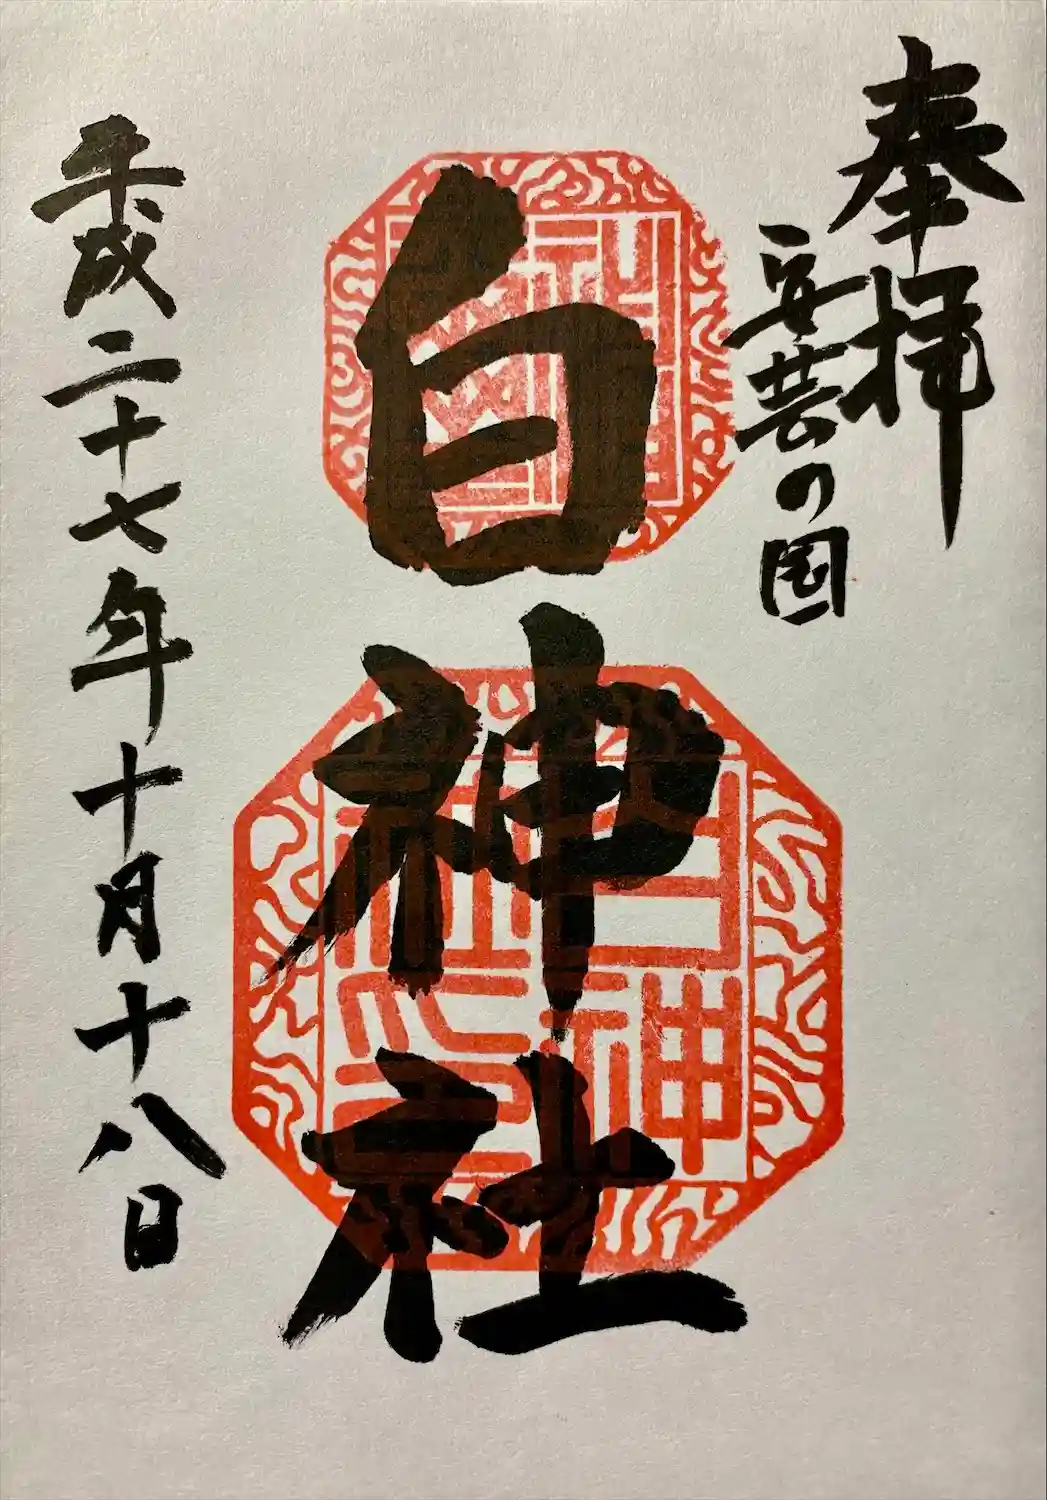 奉拝
安芸の国
白神社
平成二十七年十月十八日